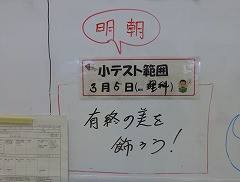 明朝
小テスト範囲
3月5日(… 理科)
有終の美を
飾ろう!